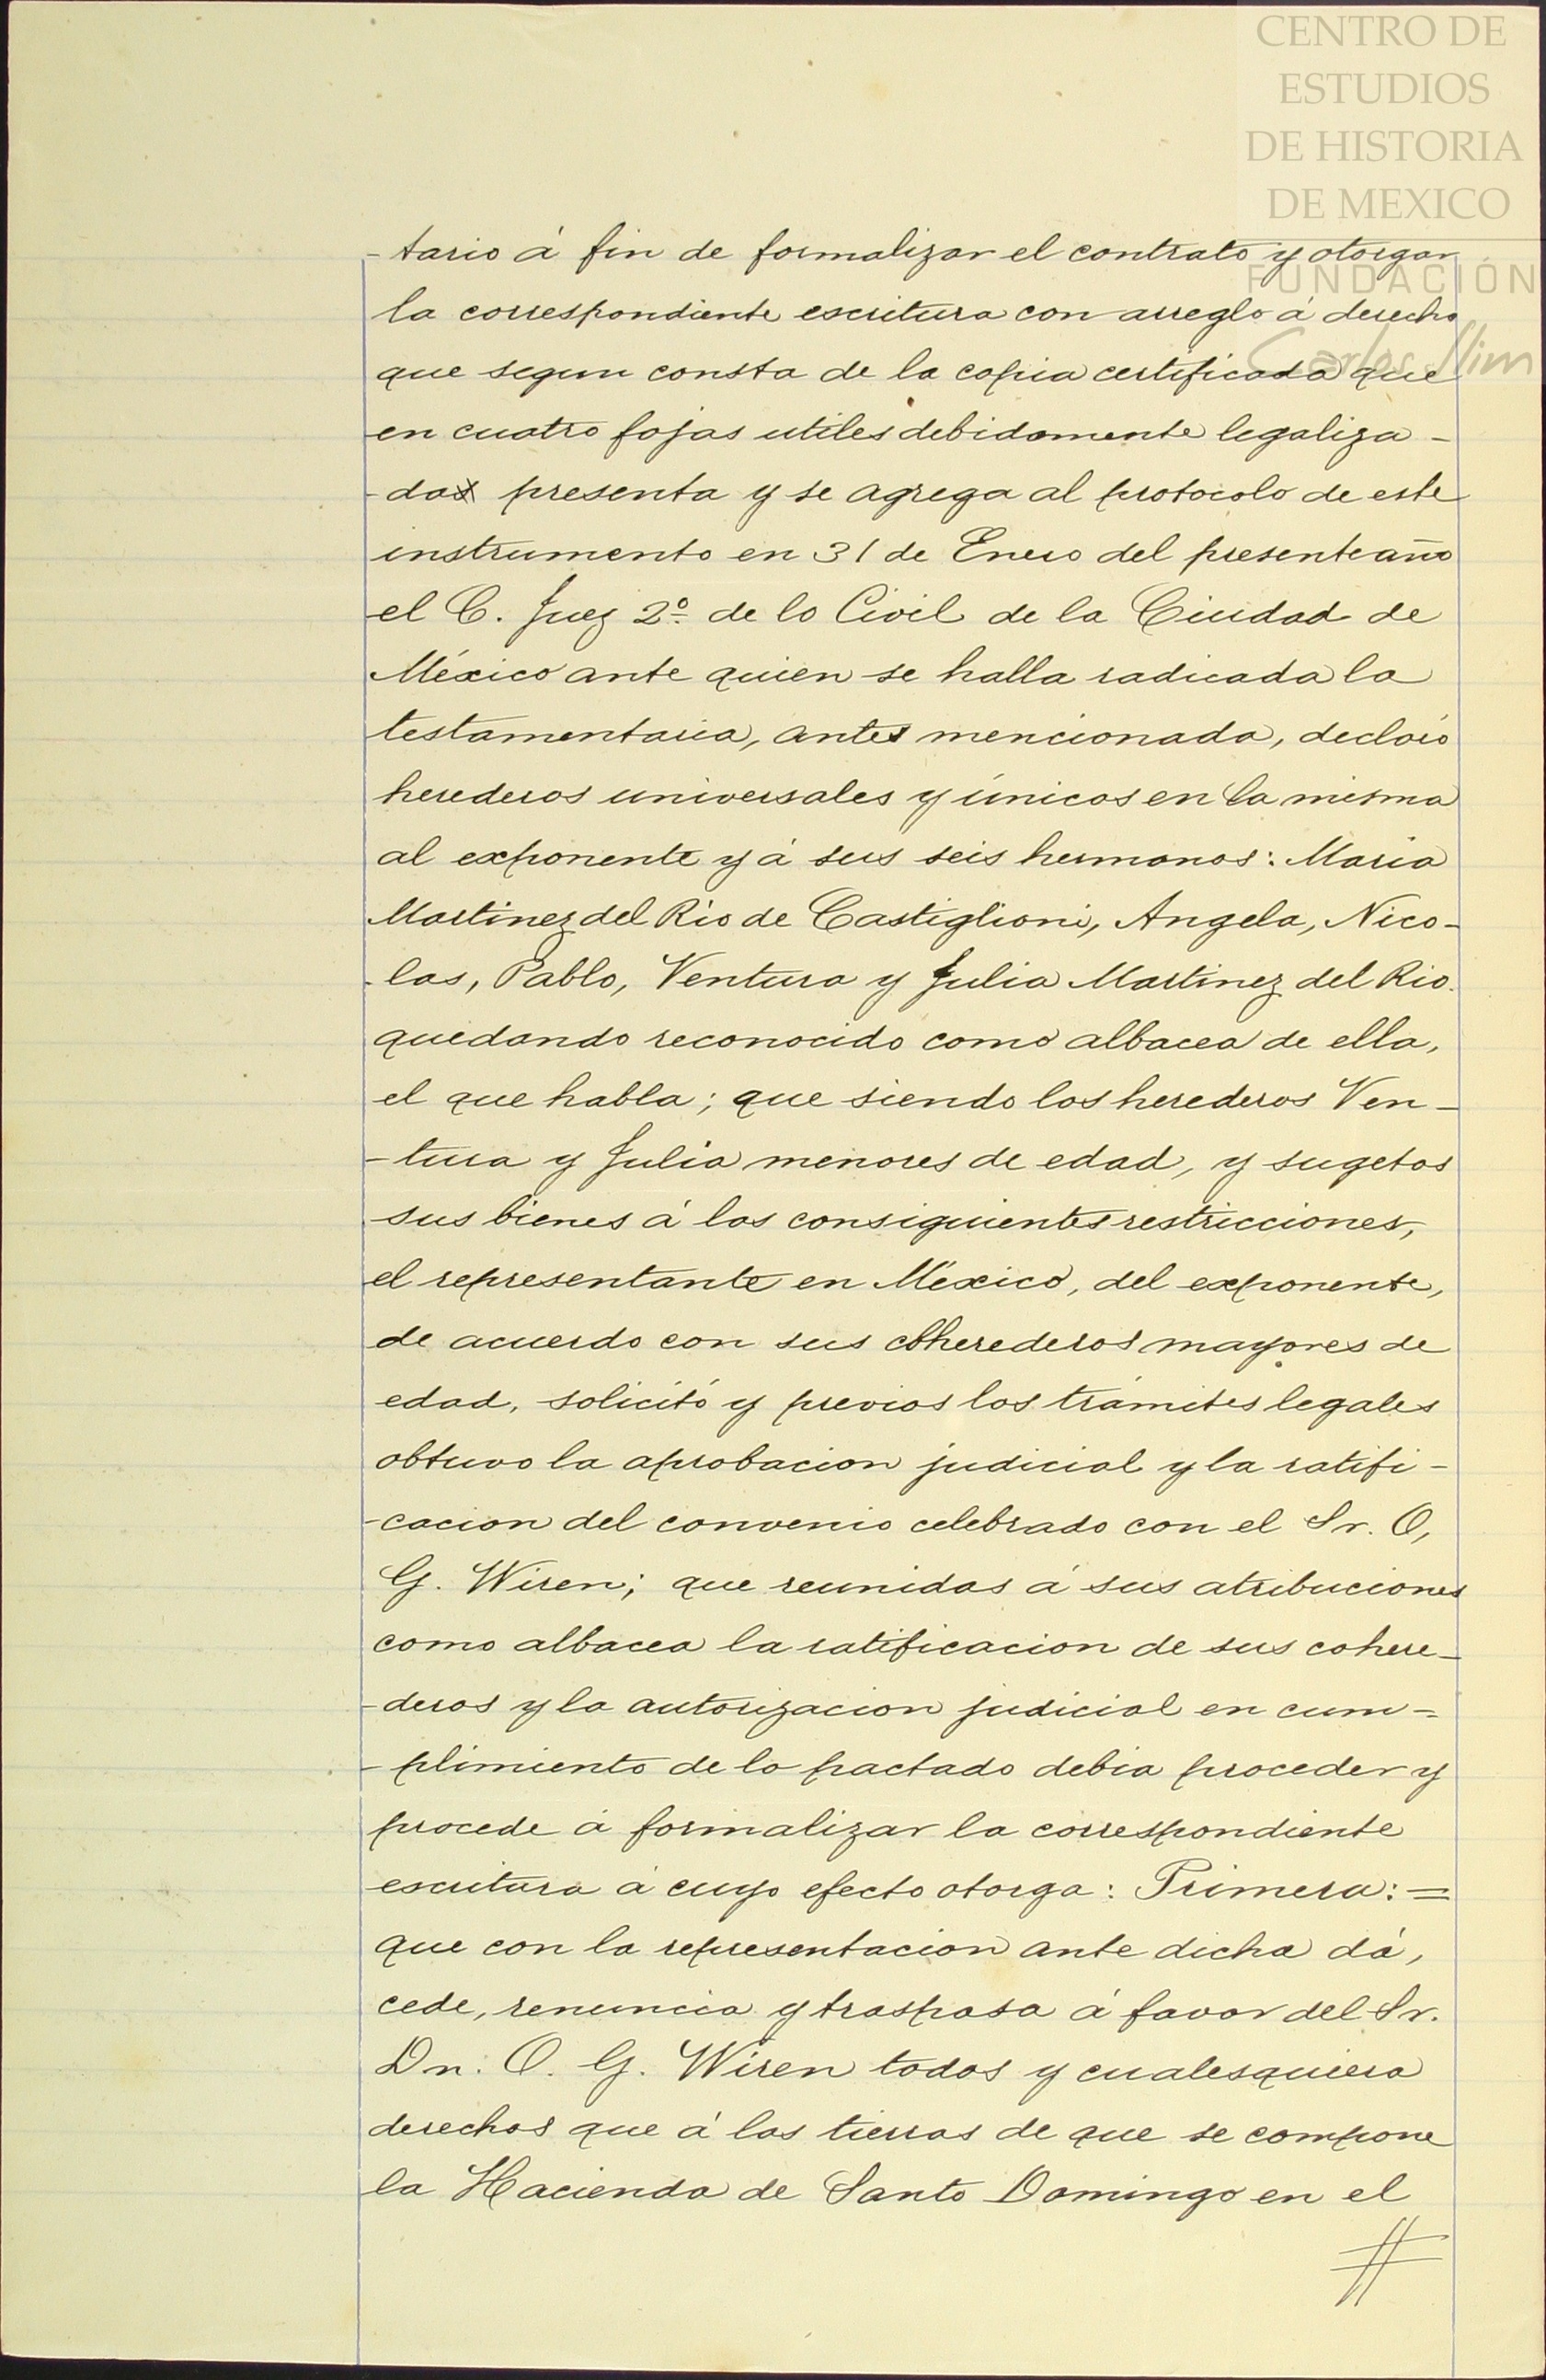 CENTRO DE
ESTUDIOS
DE HISTORIA
DE MEXICO
FUNDACIÓN
Carlos Slim
-tario á fin de formalizar el contrato y otorgar
la correspondiente escritura con arreglo á derecho
que segun consta de la copia certificada que
en cuatro fojas utiles debidamente legaliza-
-das presenta y se agrega al protocolo de este
instrumento en 31 de Enero del presente año
el C. Juez 2º de lo Civil de la Ciudad de
México ante quien se halla radicada la
testamentaria, antes mencionada, declaró
herederos universales y únicos en la misma
al exponente y á sus seis hermanos: Maria
Martinez del Rio de Castiglioni, Angela, Nico-
-las, Pablo, Ventura y Julia Martinez del Rio.
quedando reconocido como albacea de ella,
el que habla; que siendo los herederos Ven-
-tura y Julia menores de edad, y sugetos
sus bienes á las consiguientes restricciones,
el representante en México, del exponente,
de acuerdo con sus coherederos mayores de
edad, solicitó y previos los trámites legales
obtuvo la aprobacion judicial y la ratifi-
-cacion del convenio celebrado con el Sr. O,
G. Wiren; que reunidas á sus atribuciones
como albacea la ratificacion de sus cohere-
-deros y la autorizacion judicial en cum=
-plimiento de lo pactado debia proceder y
procede á formalizar la correspondiente
escritura á cuyo efecto otorga: Primera:=
que con la representacion ante dicha dá,
cede, renuncia y traspasa á favor del Sr.
Dn. O. G. Wiren todos y cualesquiera
derechos que á las tierras de que se compone
la Hacienda de Santo Domingo en el